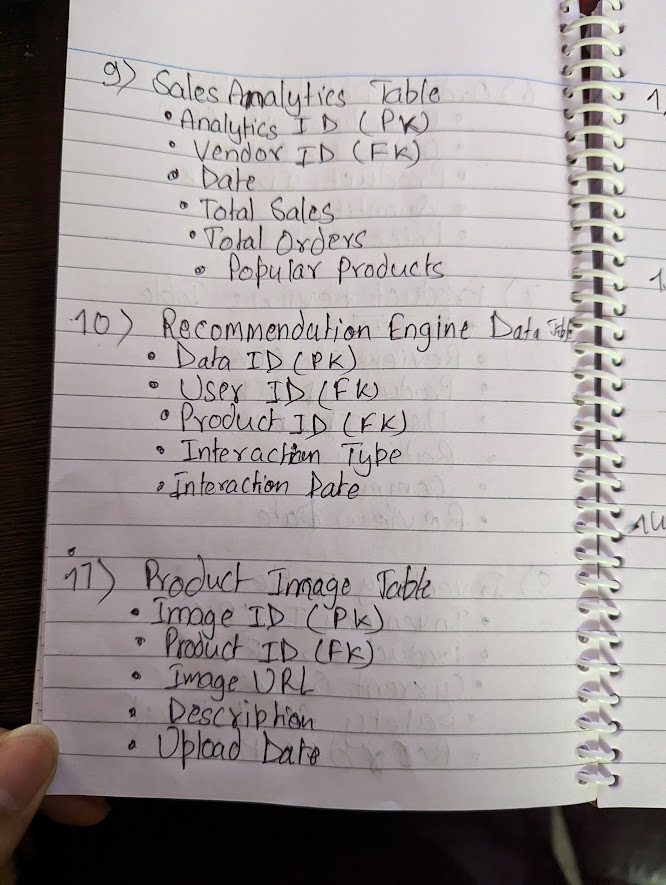 9) Sales Analytics Table
• Analytics ID (PK)
• Vendor ID (FK)
• Date
• Total Sales
• Total Orders
• Popular Products
10) Recommendation Engine Data Table
• Data ID (PK)
• User ID (FK)
• Product ID (FK)
• Interaction Type
• Interaction Date
11) Product Image Table
• Image ID (PK)
• Product ID (FK)
• Image URL
• Description
• Upload Date